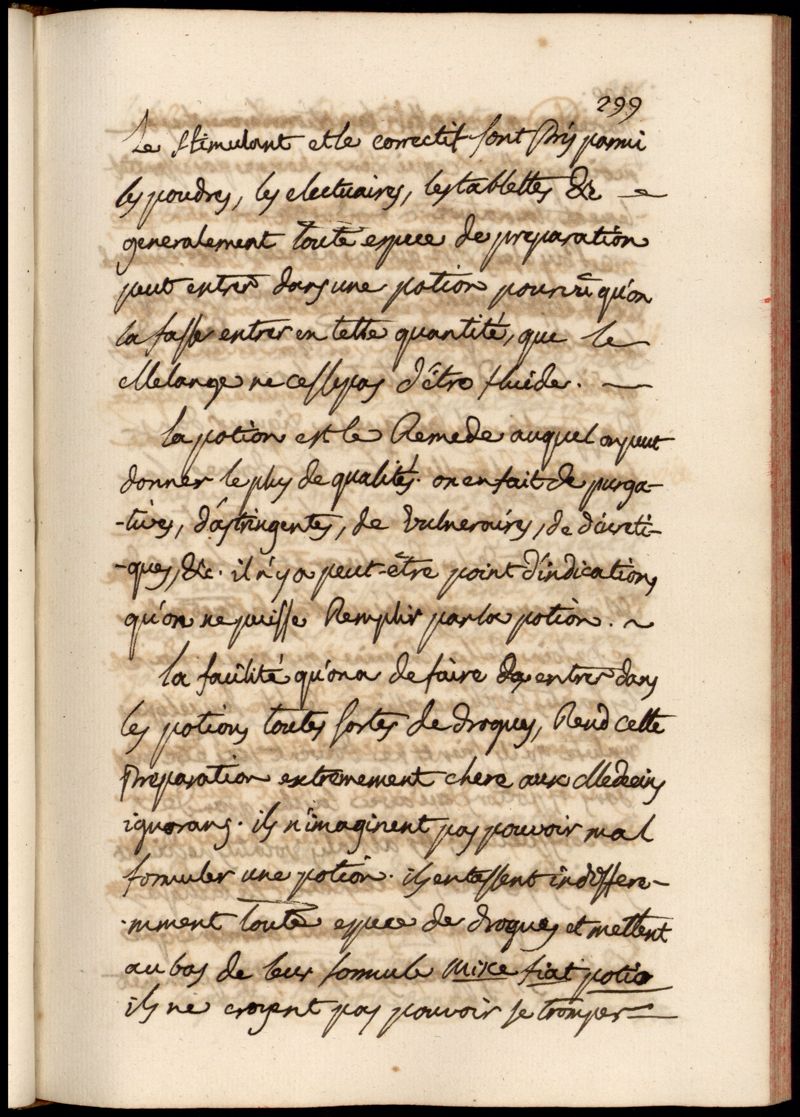 299
Le stimulant et le correctif sont Pris parmi
les poudres, les electuaires, les tablettes &c
generalement toute espece de preparation
peut entrer dans une potion pourvû qu'on
la fasse entrer en telle quantité, que le
Melange ne cesse pas d'être fluide.
la potion est le Remede auquel on peut
donner le plus de qualités. on en fait de purga-
-tives, d'astringentes, de Vulneraires, de diureti-
-ques, &c. il n'y a peut-être point d'indications
qu'on ne puisse Remplir par la potion.
la facilité qu'on a de faire entrer dans
les potions toutes sortes de drogues, Rend cette
Preparation extremement chere aux Medecins
ignorans. ils n'imaginent pas pouvoir mal
formuler une potion. ils entassent indiffere-
-mment toute espece de drogues et mettent
au bas de leur formule Misce fiat potio
ils ne croyent pas pouvoir se tromper